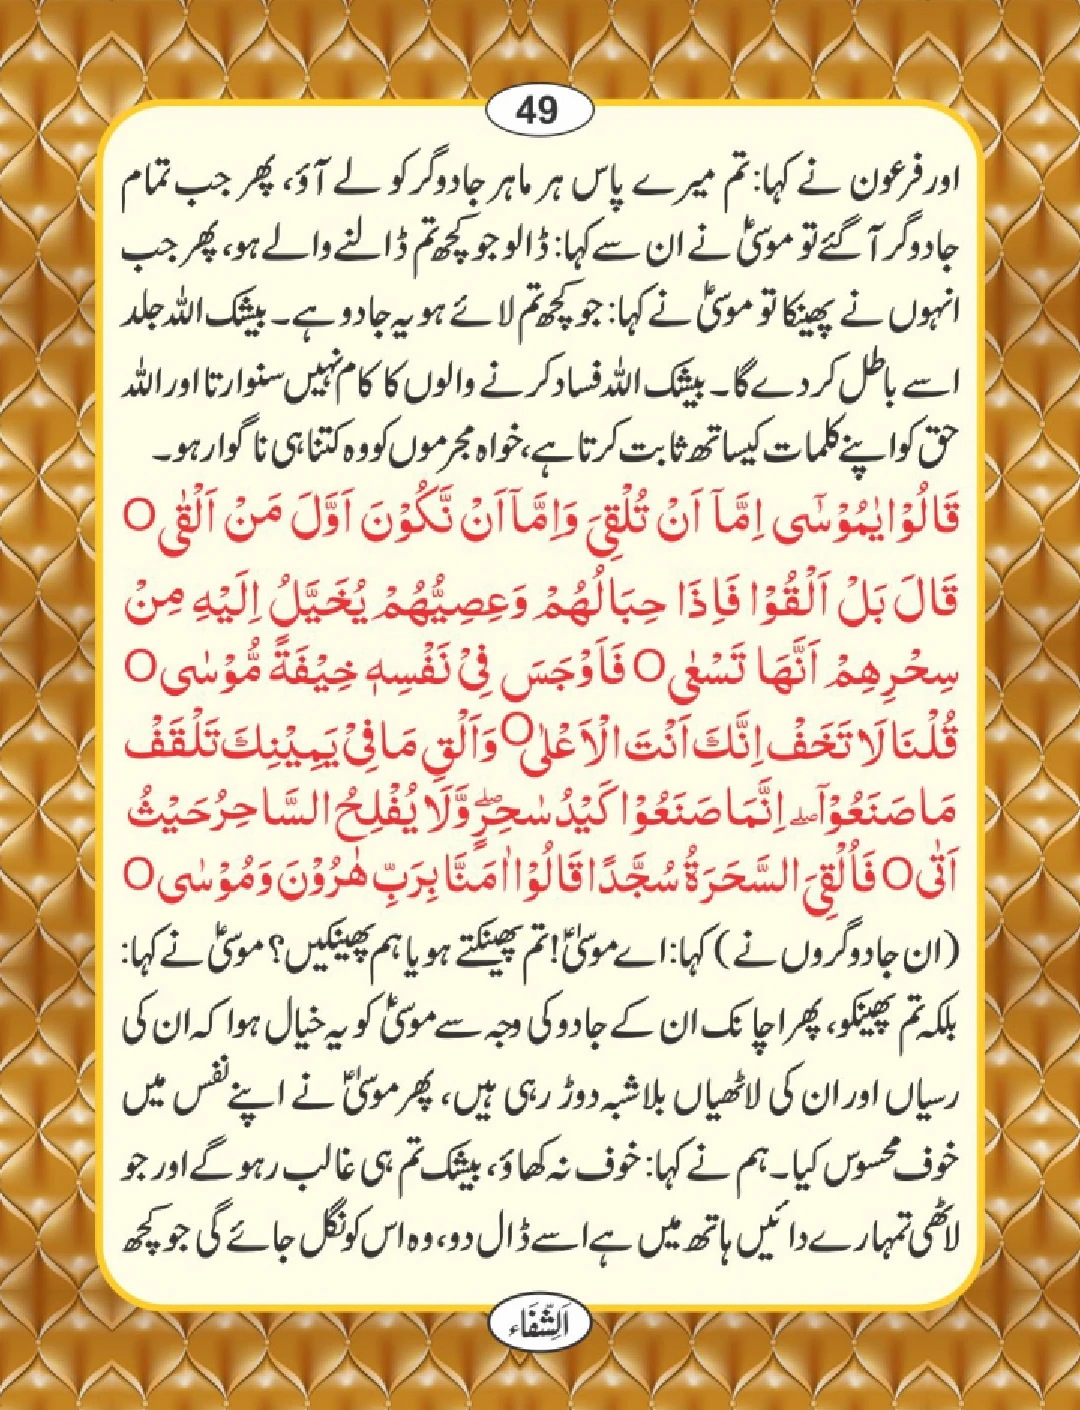 49
اور فرعون نے کہا: تم میرے پاس ہر ماہر جادوگر کو لے آؤ، پھر جب تمام
جادوگر آ گئے تو موسیٰؑ نے ان سے کہا: ڈالو جو کچھ تم ڈالنے والے ہو، پھر جب
انہوں نے پھینکا تو موسیٰؑ نے کہا: جو کچھ تم لائے ہو یہ جادو ہے۔ بیشک اللہ جلد
اسے باطل کر دے گا۔ بیشک اللہ فساد کرنے والوں کا کام نہیں سنوارتا اور اللہ
حق کو اپنے کلمات کیساتھ ثابت کرتا ہے، خواہ مجرموں کو وہ کتنا ہی ناگوار ہو۔
قَالُوْا یٰمُوْسٰۤی اِمَّاۤ اَنْ تُلْقِیَ وَ اِمَّاۤ اَنْ نَّكُوْنَ اَوَّلَ مَنْ اَلْقٰی O
قَالَ بَلْ اَلْقُوْا فَاِذَا حِبَالُهُمْ وَعِصِیُّهُمْ یُخَیَّلُ اِلَیْهِ مِنْ
سِحْرِهِمْ اَنَّهَا تَسْعٰی O فَاَوْجَسَ فِیْ نَفْسِهٖ خِیْفَةً مُّوْسٰی O
قُلْنَا لَا تَخَفْ اِنَّكَ اَنْتَ الْاَعْلٰی O وَاَلْقِ مَا فِیْ یَمِیْنِكَ تَلْقَفْ
مَا صَنَعُوْاۤ ۖ اِنَّمَا صَنَعُوْا كَیْدُ سٰحِرٍ ۖ وَّلَا یُفْلِحُ السَّاحِرُ حَیْثُ
اَتٰی O فَاُلْقِیَ السَّحَرَةُ سُجَّدًا قَالُوْۤا اٰمَنَّا بِرَبِّ هٰرُوْنَ وَمُوْسٰی O
(ان جادوگروں نے) کہا: اے موسیٰؑ! تم پھینکتے ہو یا ہم پھینکیں؟ موسیٰؑ نے کہا:
بلکہ تم پھینکو، پھر اچانک ان کے جادو کی وجہ سے موسیٰؑ کو یہ خیال ہوا کہ ان کی
رسیاں اور ان کی لاٹھیاں بلاشبہ دوڑ رہی ہیں، پھر موسیٰؑ نے اپنے نفس میں
خوف محسوس کیا۔ ہم نے کہا: خوف نہ کھاؤ، بیشک تم ہی غالب رہو گے اور جو
لاٹھی تمہارے دائیں ہاتھ میں ہے اسے ڈال دو، وہ اس کو نگل جائے گی جو کچھ
اَلشِّفَاء